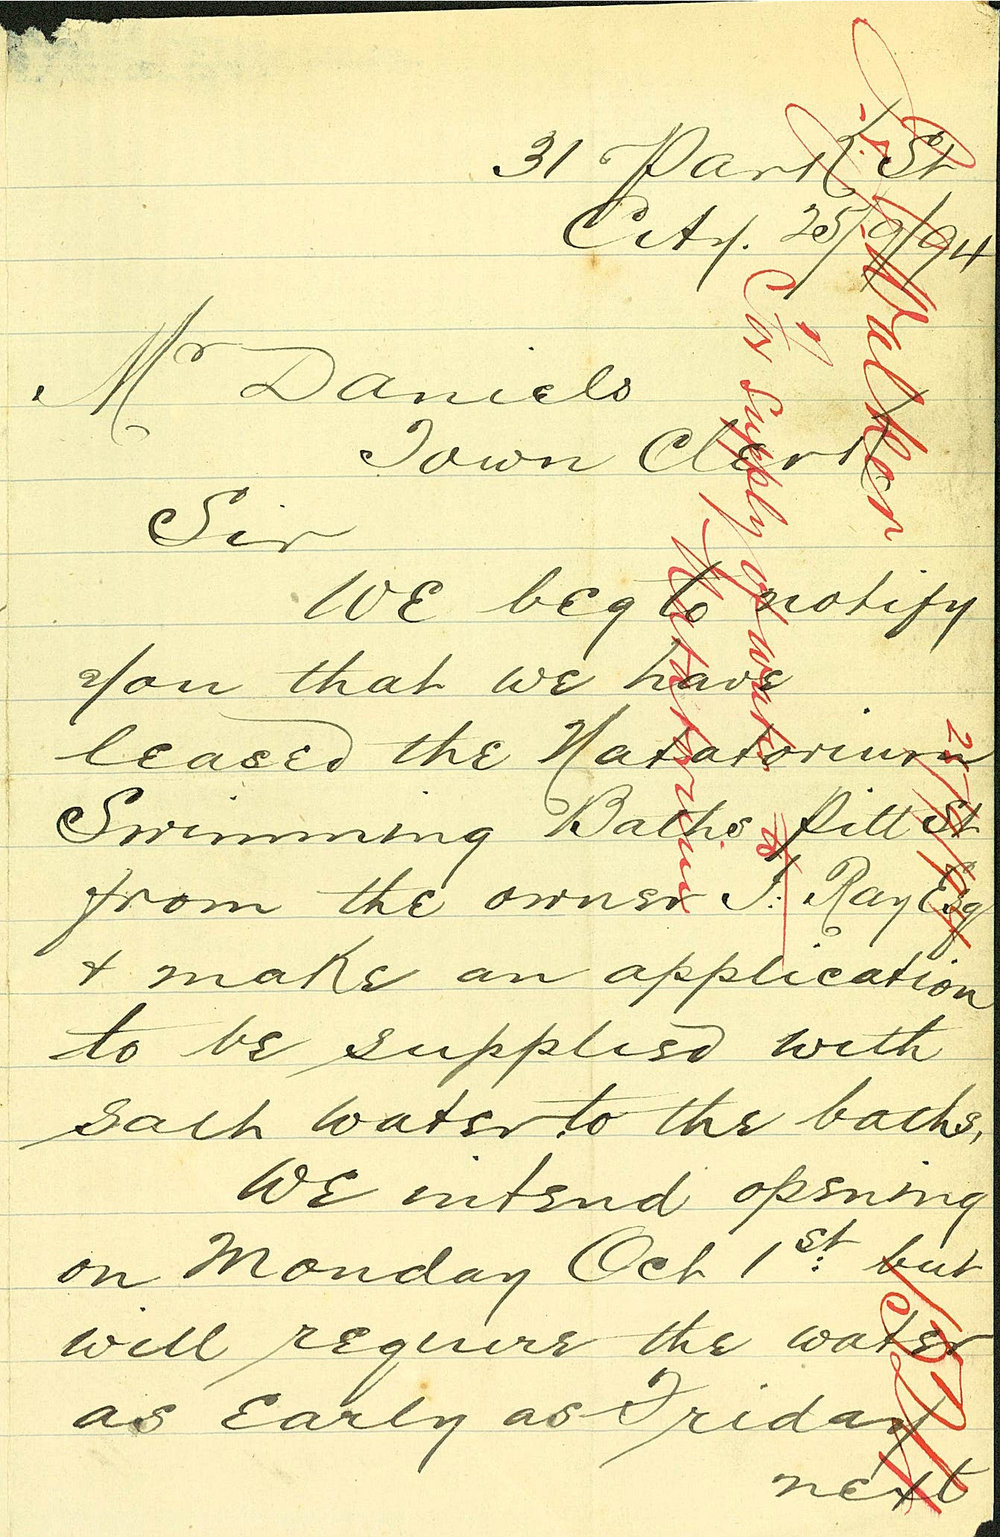 31 Park St
City. 25/9/94
Mr Daniels
Town Clerk
Sir
We beg to notify
you that we have
leased the Natatorium
Swimming Baths Pitt St
from the owner J: Ray Esq
& make an application
to be supplied with
salt water to the baths,
We intend opening
on Monday Oct 1st but
will require the water
as early as Friday
next
Walker
for supply of water to
Natatorium